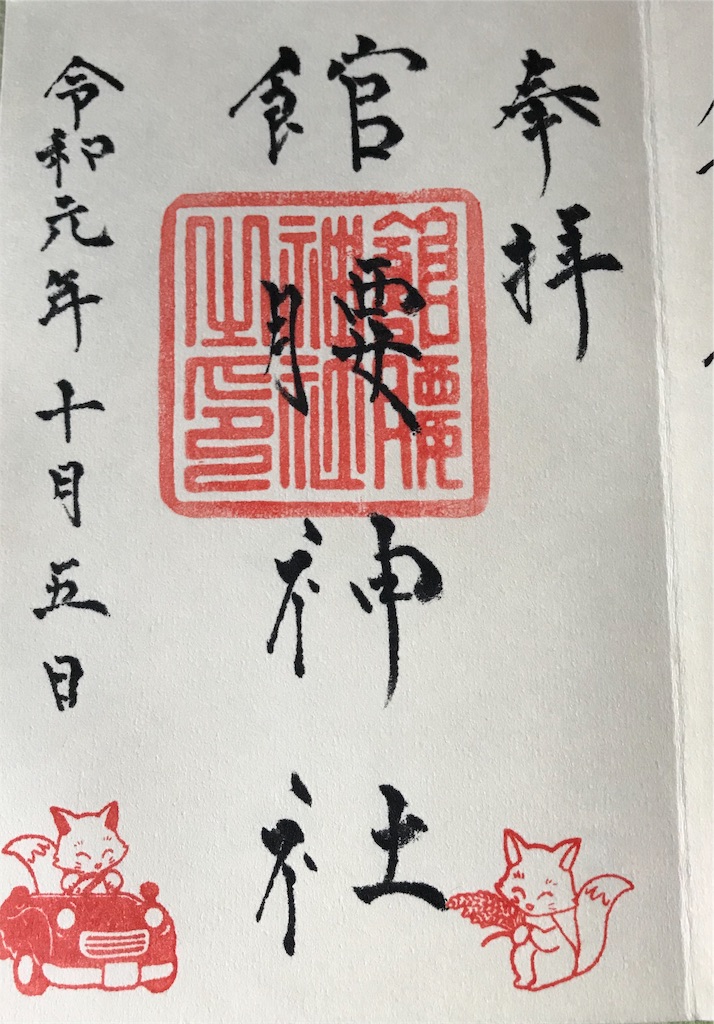 奉拝
館腰神社
館腰神社之印
令和元年十月五日